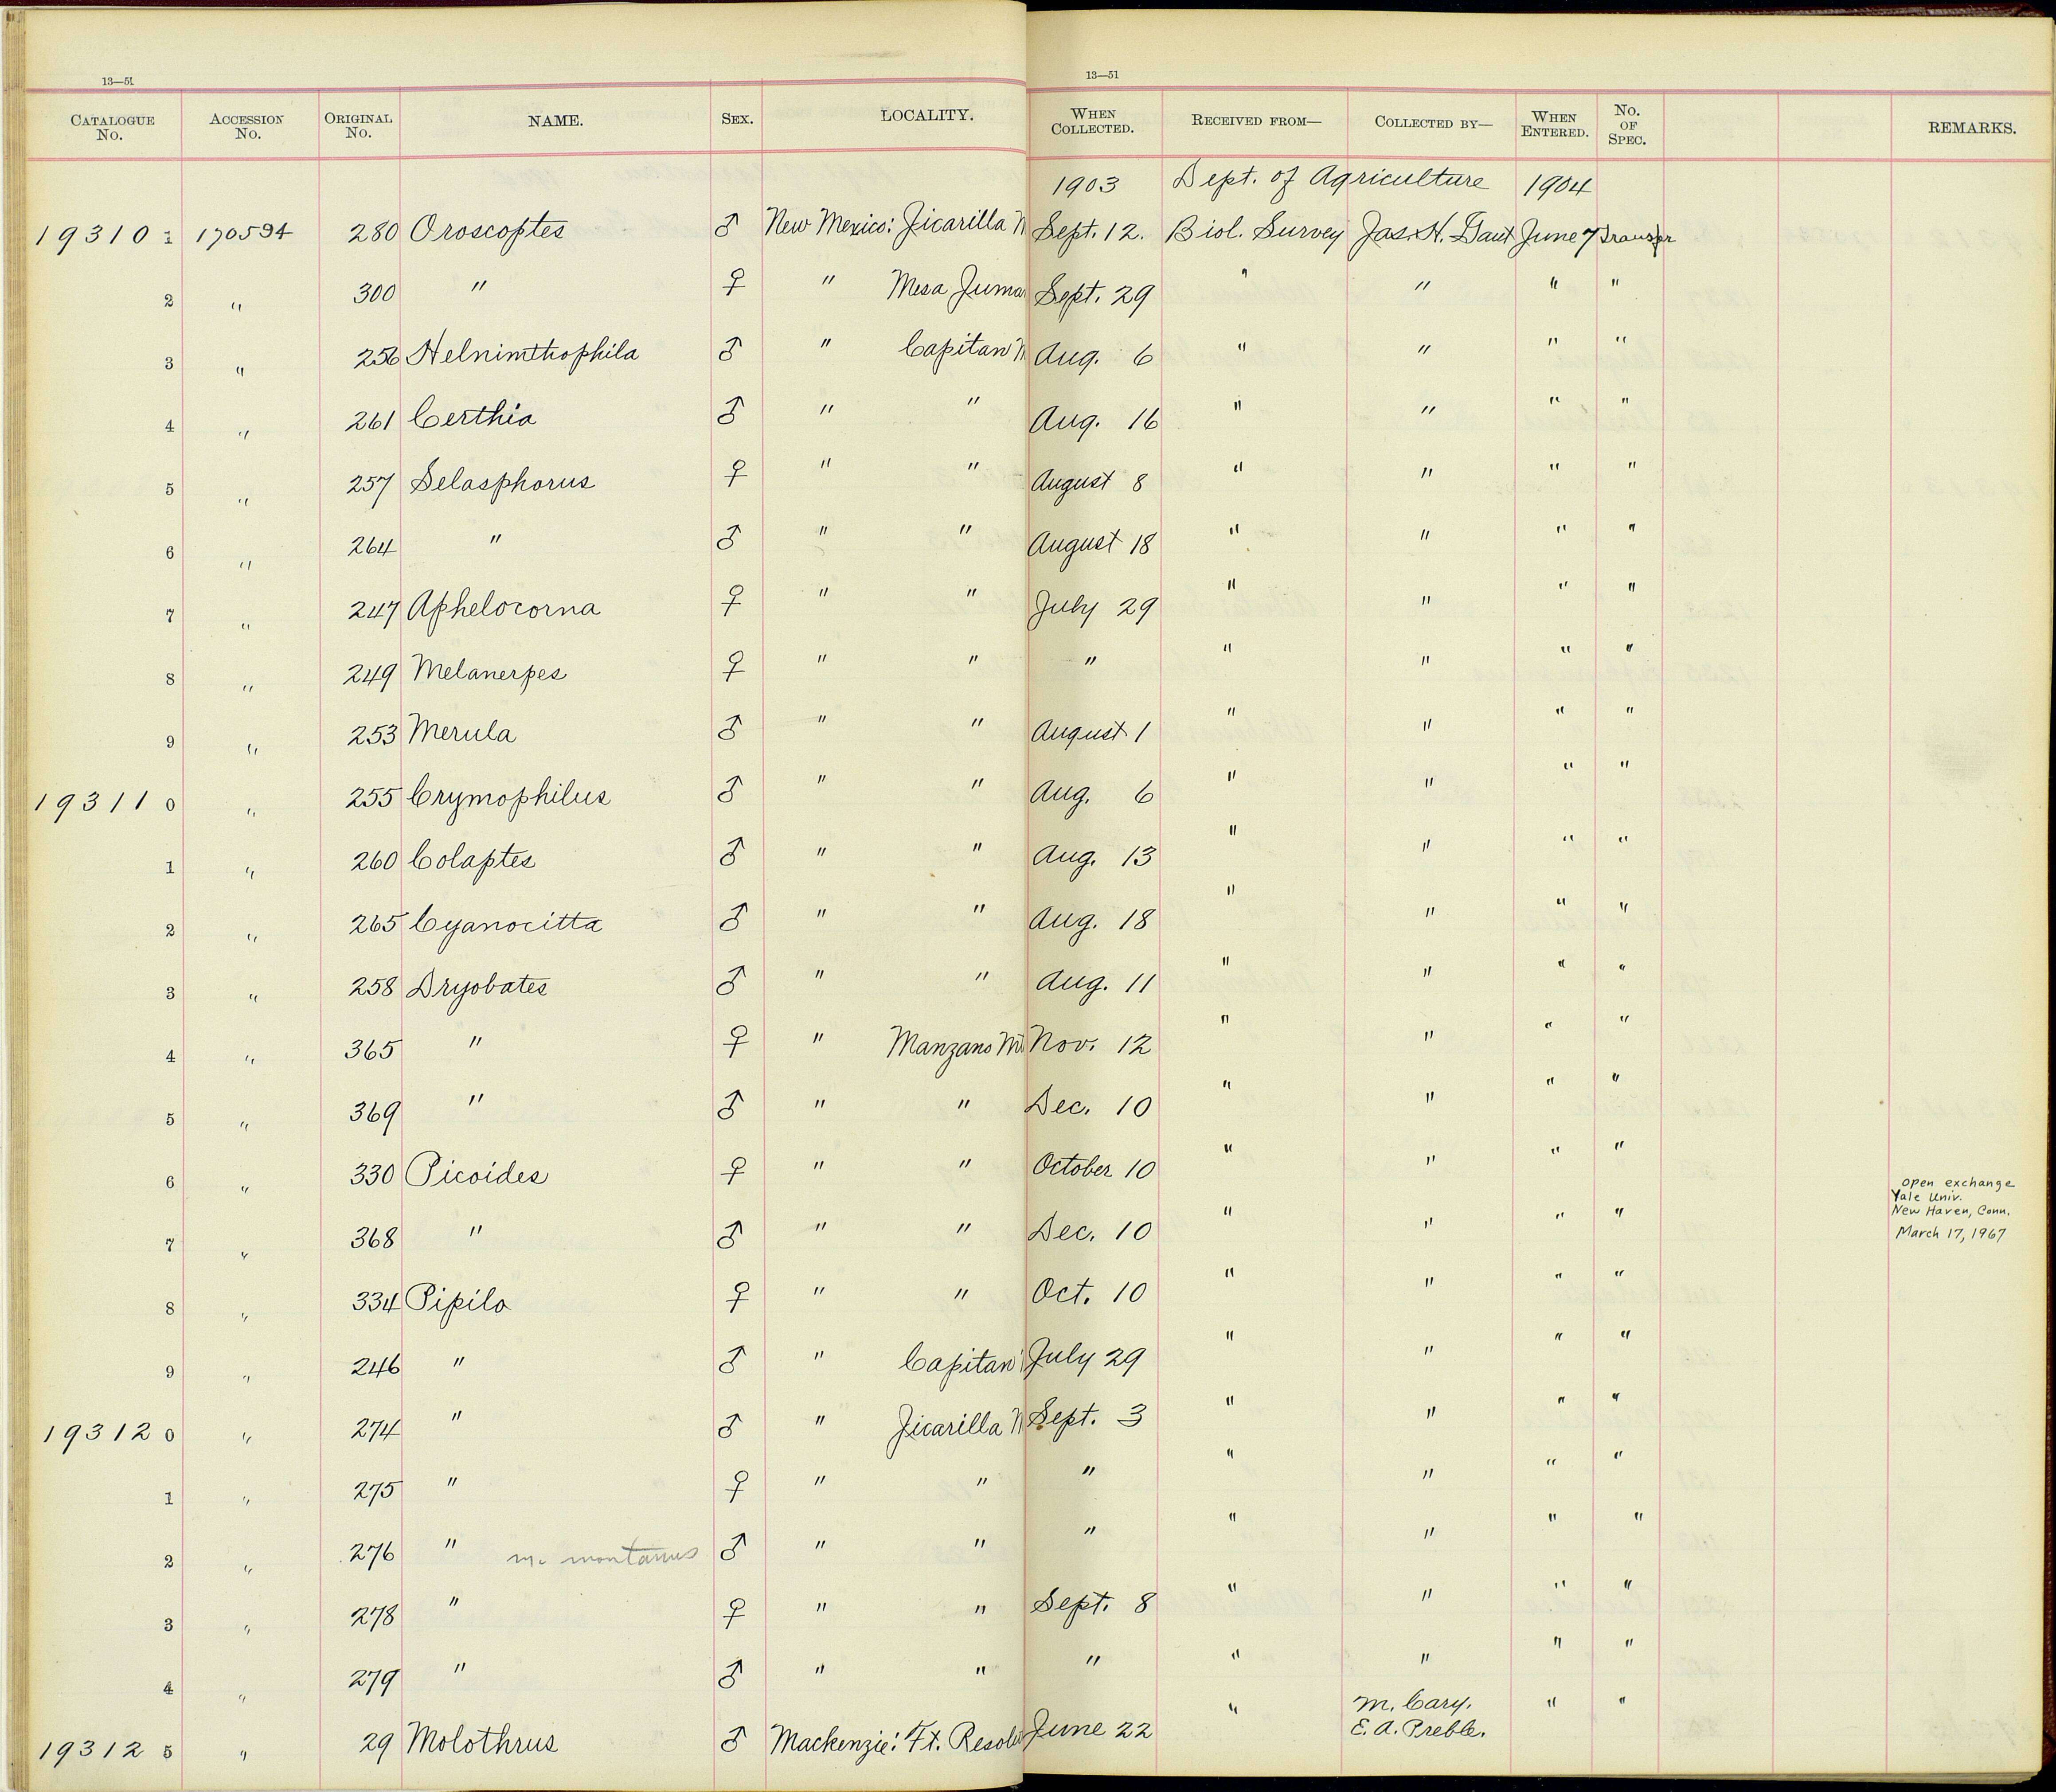 13—51 13—51
CATALOGUE No. ACCESSION No. ORIGINAL No. NAME. SEX. LOCALITY. WHEN COLLECTED. RECEIVED FROM— COLLECTED BY— WHEN ENTERED. No. OF SPEC. REMARKS.
1903 Dept. of Agriculture 1904
19310 1 170594 280 Oroscoptes ♂ New Mexico: Jicarilla M Sept. 12. Biol. Survey Jas. H. Gaut June 7 Transfer
2 " 300 " ♀ " Mesa Juma Sept. 29 " " " "
3 " 256 Helnimthophila ♂ " Capitan M Aug. 6 " " " "
4 " 261 Certhia ♂ " " Aug. 16 " " " "
5 " 257 Selasphorus ♀ " " August 8 " " " "
6 " 264 " ♂ " " August 18 " " " "
7 " 247 Aphelocorna ♀ " " July 29 " " " "
8 " 249 Melanerpes ♀ " " " " " " "
9 " 253 Merula ♂ " " August 1 " " " "
19311 0 " 255 Crymophilus ♂ " " Aug. 6 " " " "
1 " 260 Colaptes ♂ " " Aug. 13 " " " "
2 " 265 Cyanocitta ♂ " " Aug. 18 " " " "
3 " 258 Dryobates ♂ " " Aug. 11 " " " "
4 " 365 " ♀ " Manzano Mt Nov. 12 " " " "
5 " 369 " ♂ " " Dec. 10 " " " "
6 " 330 Picoides ♀ " " October 10 " " " "
open exchange
Yale Univ.
New Haven, Conn.
7 " 368 " ♂ " " Dec. 10 " " " " March 17, 1967
8 " 334 Pipilo ♀ " " Oct. 10 " " " "
9 " 246 " ♂ " Capitan July 29 " " " "
19312 0 " 274 " ♂ " Jicarilla M Sept. 3 " " " "
1 " 275 " ♀ " " " " " " "
2 " 276 " m. montanus ♂ " " " " " " "
3 " 278 " ♀ " " Sept. 8 " " " "
4 " 279 " ♂ " " " " " " "
M. Cary.
19312 5 " 29 Molothrus ♂ Mackenzie: Ft. Resolu June 22 " E. A. Preble. " "